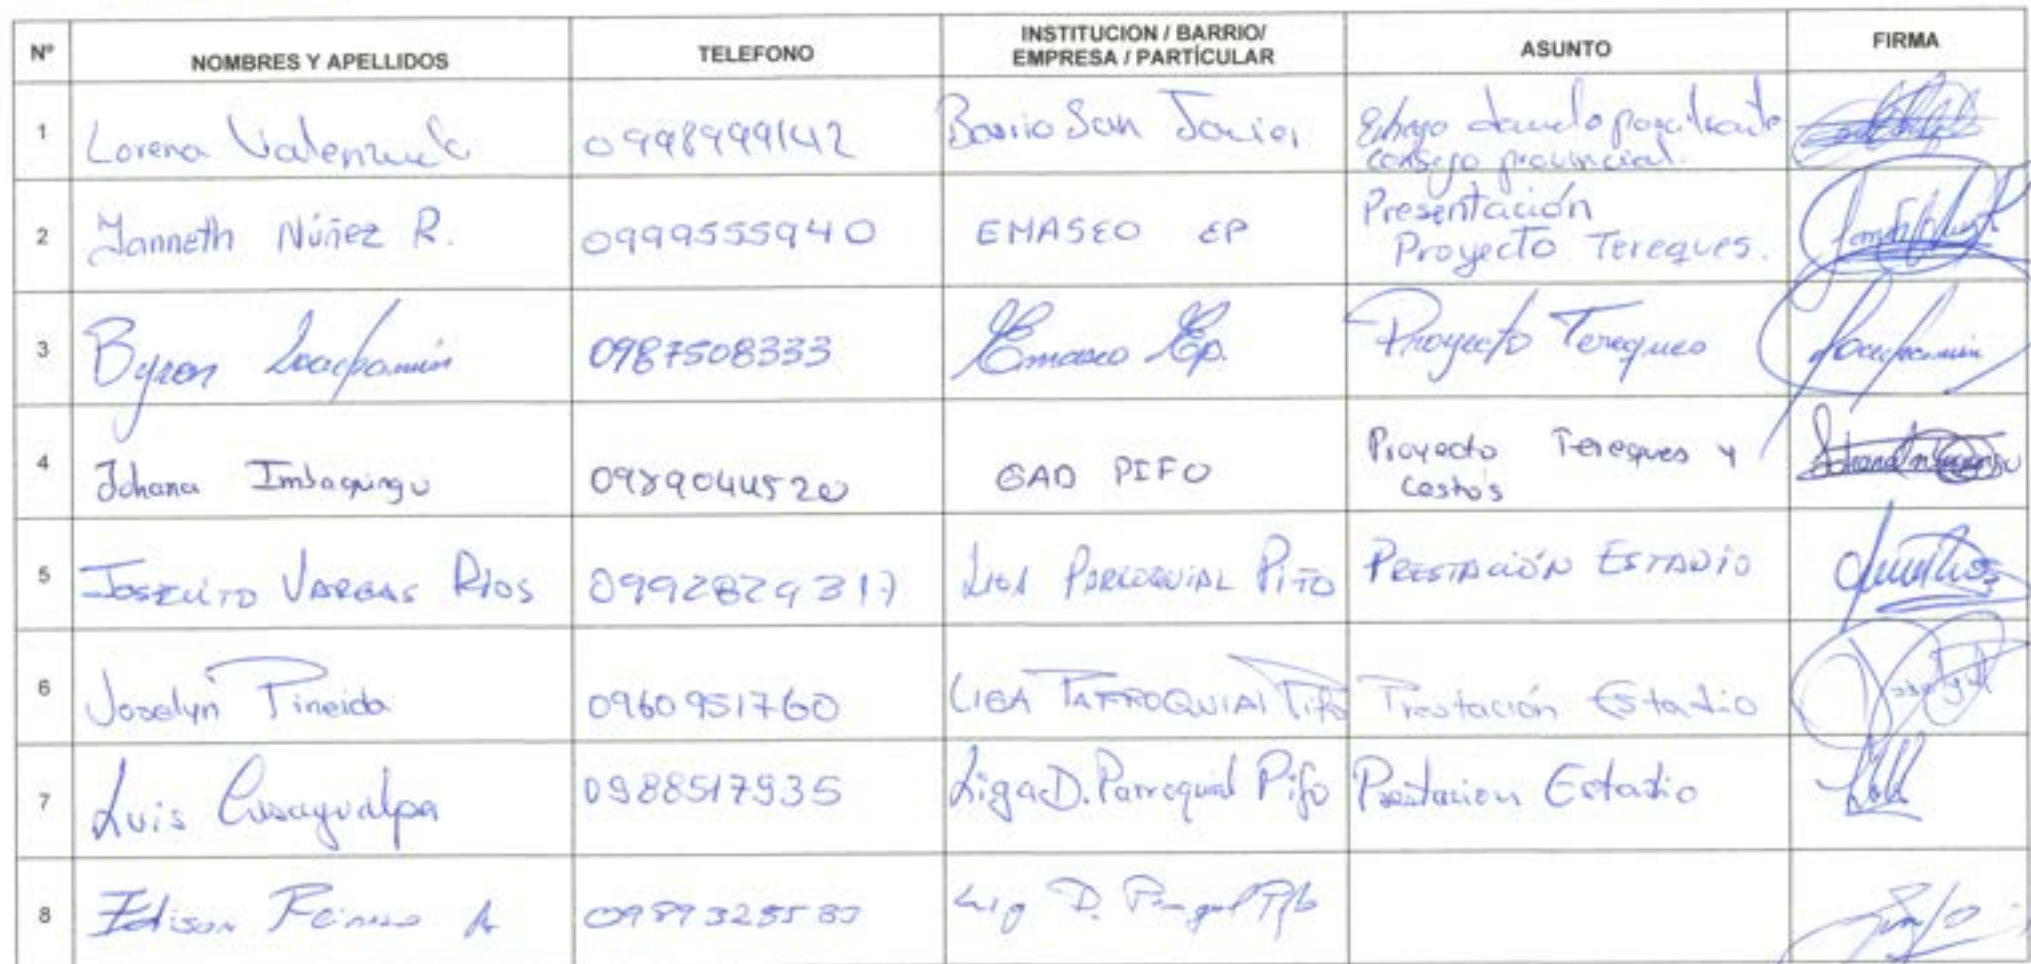 Nº NOMBRES Y APELLIDOS TELEFONO INSTITUCION / BARRIO/ EMPRESA / PARTÍCULAR ASUNTO FIRMA
1 Lorena Valenzuela 0998999142 Barrio San Javier
consejo provincial.
2 Janneth Núñez R. 0999555940 EMASEO EP Presentación
Proyecto Tereques.
3 Byron Loachamin 0987508333 Emaseo Ep. Proyecto Tereques
4 Johana Imbaquingu 0989044520 GAD PIFO Proyecto Tereques y
Costos
5 JOSELITO VARGAS RIOS 0992829317 LIGA PARROQUIAL PIFO PRESTACIÓN ESTADIO
6 Joselyn Pineida 0960951760 LIGA PARROQUIAL Pifo Prestación Estadio
7 Luis Cusagualpa 0988517935 Liga D. Parroquial Pifo Prestacion Estadio
8 Edison